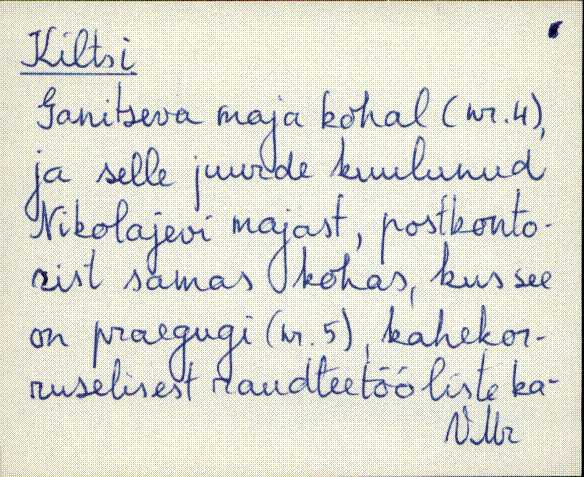 Kiltsi
Ganitseva maja kohal (nr. 4),
ja selle juurde kuulunud
Nikolajevi majast, postkonto-
rist samas kohas, kus see
on praegugi (nr. 5), kahekor-
ruselisest raudteetööliste ka-